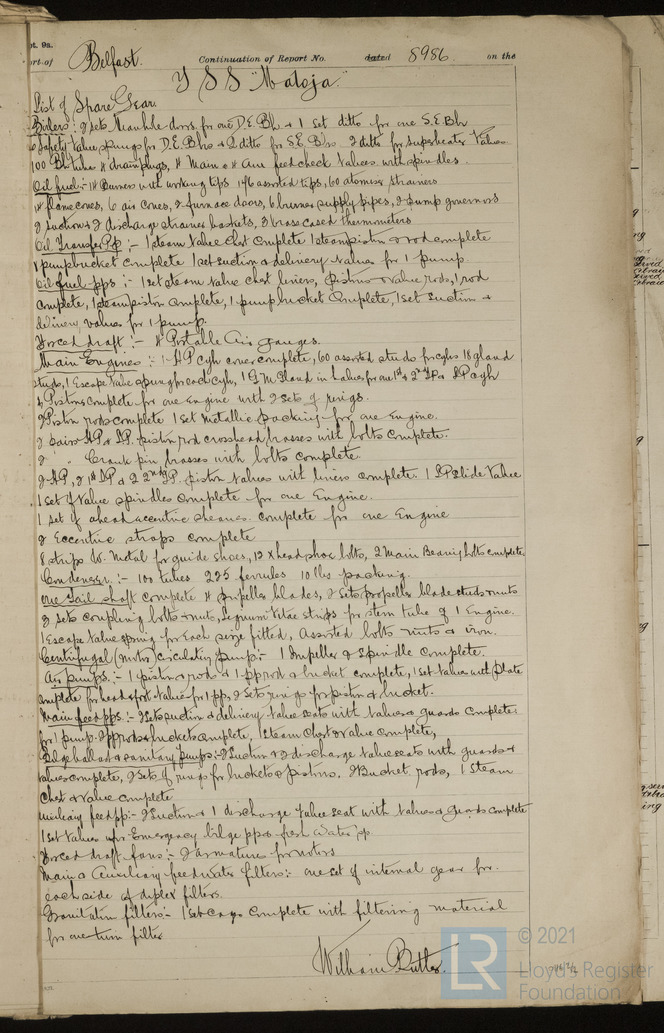 pt. 9a.
ort of Belfast. Continuation of Report No. dated 8986 on the
T S S "Maloja"
List of Spare Gear.
Boilers: 2 sets Manhole doors for one D.E. Blr & 1 set ditto for one S.E. Blr
Safety Valve springs for D.E. Blrs & 2 ditto for S.E. Blrs 2 ditto for superheater Valves
100 Blr tubes 4 drain plugs, 4 Main & 4 Aux feed check Valves with spindles
Oil fuel:- 14 Burners with working tips 146 assorted tips, 60 atomiser strainers
14 flame cones, 6 air cones, 2 furnace doors, 6 burner supply pipes, 2 pump governors
2 suction & 2 discharge strainer baskets, 3 brass cased thermometers
Oil Transfer Pp:- 1 steam Valve Chest Complete 1 steam piston & rod complete
1 pump bucket complete 1 set suction & delivery Valves for 1 pump
Oil fuel pps:- 1 set steam Valve chest liners, pistons & Valve rods, 1 rod
complete, 1 steam piston Complete, 1 pump bucket Complete, 1 set suction &
delivery valves for 1 pump.
Forced draft:- 4 Portable Air gauges.
Main Engines:- 1 H.P. cylr cover complete, 60 assorted studs for cylrs 18 gland
studs, 1 Escape Valve spring for each cylr, 1 G.M. Gland in halves for one 1st & 2nd I.P. & L.P. cylr
4 Pistons complete for one Engine with 2 sets of rings.
2 Piston rods complete 1 set Metallic packing for one Engine.
2 pairs H.P. & I.P. piston rod crosshead brasses with bolts Complete.
2 " Crank pin brasses with bolts complete.
2 H.P., 2 1st I.P. & 2 2nd I.P. piston Valves with liners complete. 1 L.P. Slide Valve
1 set of Valve spindles Complete for one Engine.
1 set of ahead eccentric sheaves complete for one Engine
2 Eccentric straps complete
8 strips W. Metal for guide shoes, 12 x head shoe bolts, 2 Main Bearing bolts complete
Condenser:- 100 tubes 225 ferrules 10 lbs packing.
One Tail shaft complete 4 propeller blades, 2 sets propeller blade studs & nuts
2 sets coupling bolts & nuts, Lignum Vitae strips for stern tube of 1 Engine.
1 Escape Valve spring for each size fitted, Assorted bolts nuts & iron.
Centrifugal (Motor) Circulating pump:- 1 Impeller & Spindle complete.
Air pumps:- 1 piston & rod & 1 pp rod & bucket complete, 1 set Valves with plate
complete for head & foot Valve for 1 pp, 2 sets rings for piston & bucket.
Main feed pps:- 2 sets suction & delivery Valve seats with Valves & guards Complete
for 1 pump. 2 pp rods & buckets complete, 1 steam Chest & Valve complete,
Bilge ballast & sanitary pumps:- 2 Suction & 2 discharge Valve seats with guards &
valves complete, 2 sets of rings for buckets & pistons. 2 Bucket rods, 1 Steam
Chest & Valve complete
Auxiliary feed pp:- 2 Suction & 1 discharge Valve seat with Valves & Guards complete
1 set Valves for Emergency bilge pp & fresh Water pp
Forced draft fans:- 2 armatures for motors
Main & Auxiliary feed Water filters:- one set of internal gear for
each side of duplex filters.
Gravitation filters:- 1 set complete with filtering material
for one turn filter
William Butler.
© 2021
LR
Lloyd's Register
Foundation